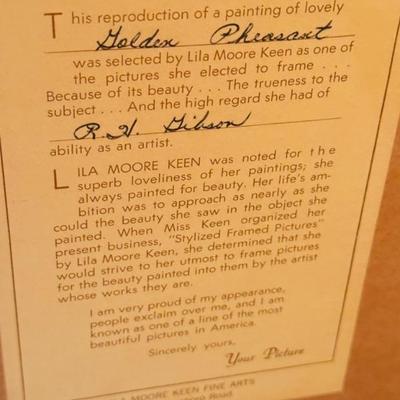 This reproduction of a painting of lovely
Golden Pheasant
was selected by Lila Moore Keen as one of
the pictures she elected to frame . . .
Because of its beauty . . . The trueness to the
subject . . . And the high regard she had of
R. H. Gibson
ability as an artist.
LILA MOORE KEEN was noted for the
superb loveliness of her paintings; she
always painted for beauty. Her life's am-
bition was to approach as nearly as she
could the beauty she saw in the object she
painted. When Miss Keen organized her
present business, "Stylized Framed Pictures"
by Lila Moore Keen, she determined that she
would strive to her utmost to frame pictures
for the beauty painted into them by the artist
whose works they are.
I am very proud of my appearance,
people exclaim over me, and I am
known as one of a line of the most
beautiful pictures in America.
Sincerely yours,
Your Picture
MOORE KEEN FINE ARTS
Road